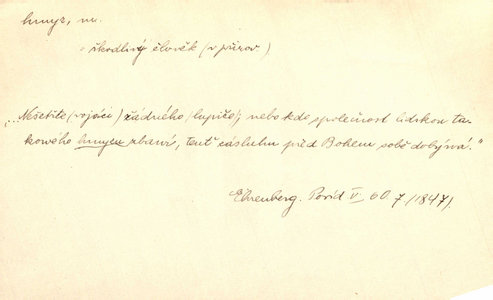 hmyz, m.
škodlivý člověk (v přirov.)
„Nešetřte (vojáci) žádného (lupiče), nebo kdo společnost lidskou ta-
kového hmyzu zbaví, tenť zásluhu před Bohem sobě dobývá."
Ehrenberg. Povíd V, 60. 7 (1847).